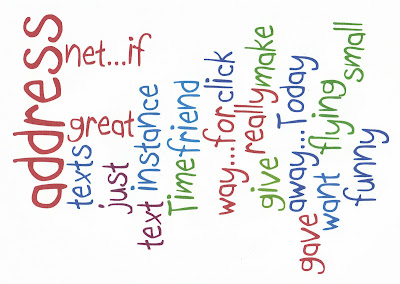 address
net...if
great
texts
just
text
instance
Time
friend
way...for
click
really
make
give
away...Today
gave
want
flying
funny
small